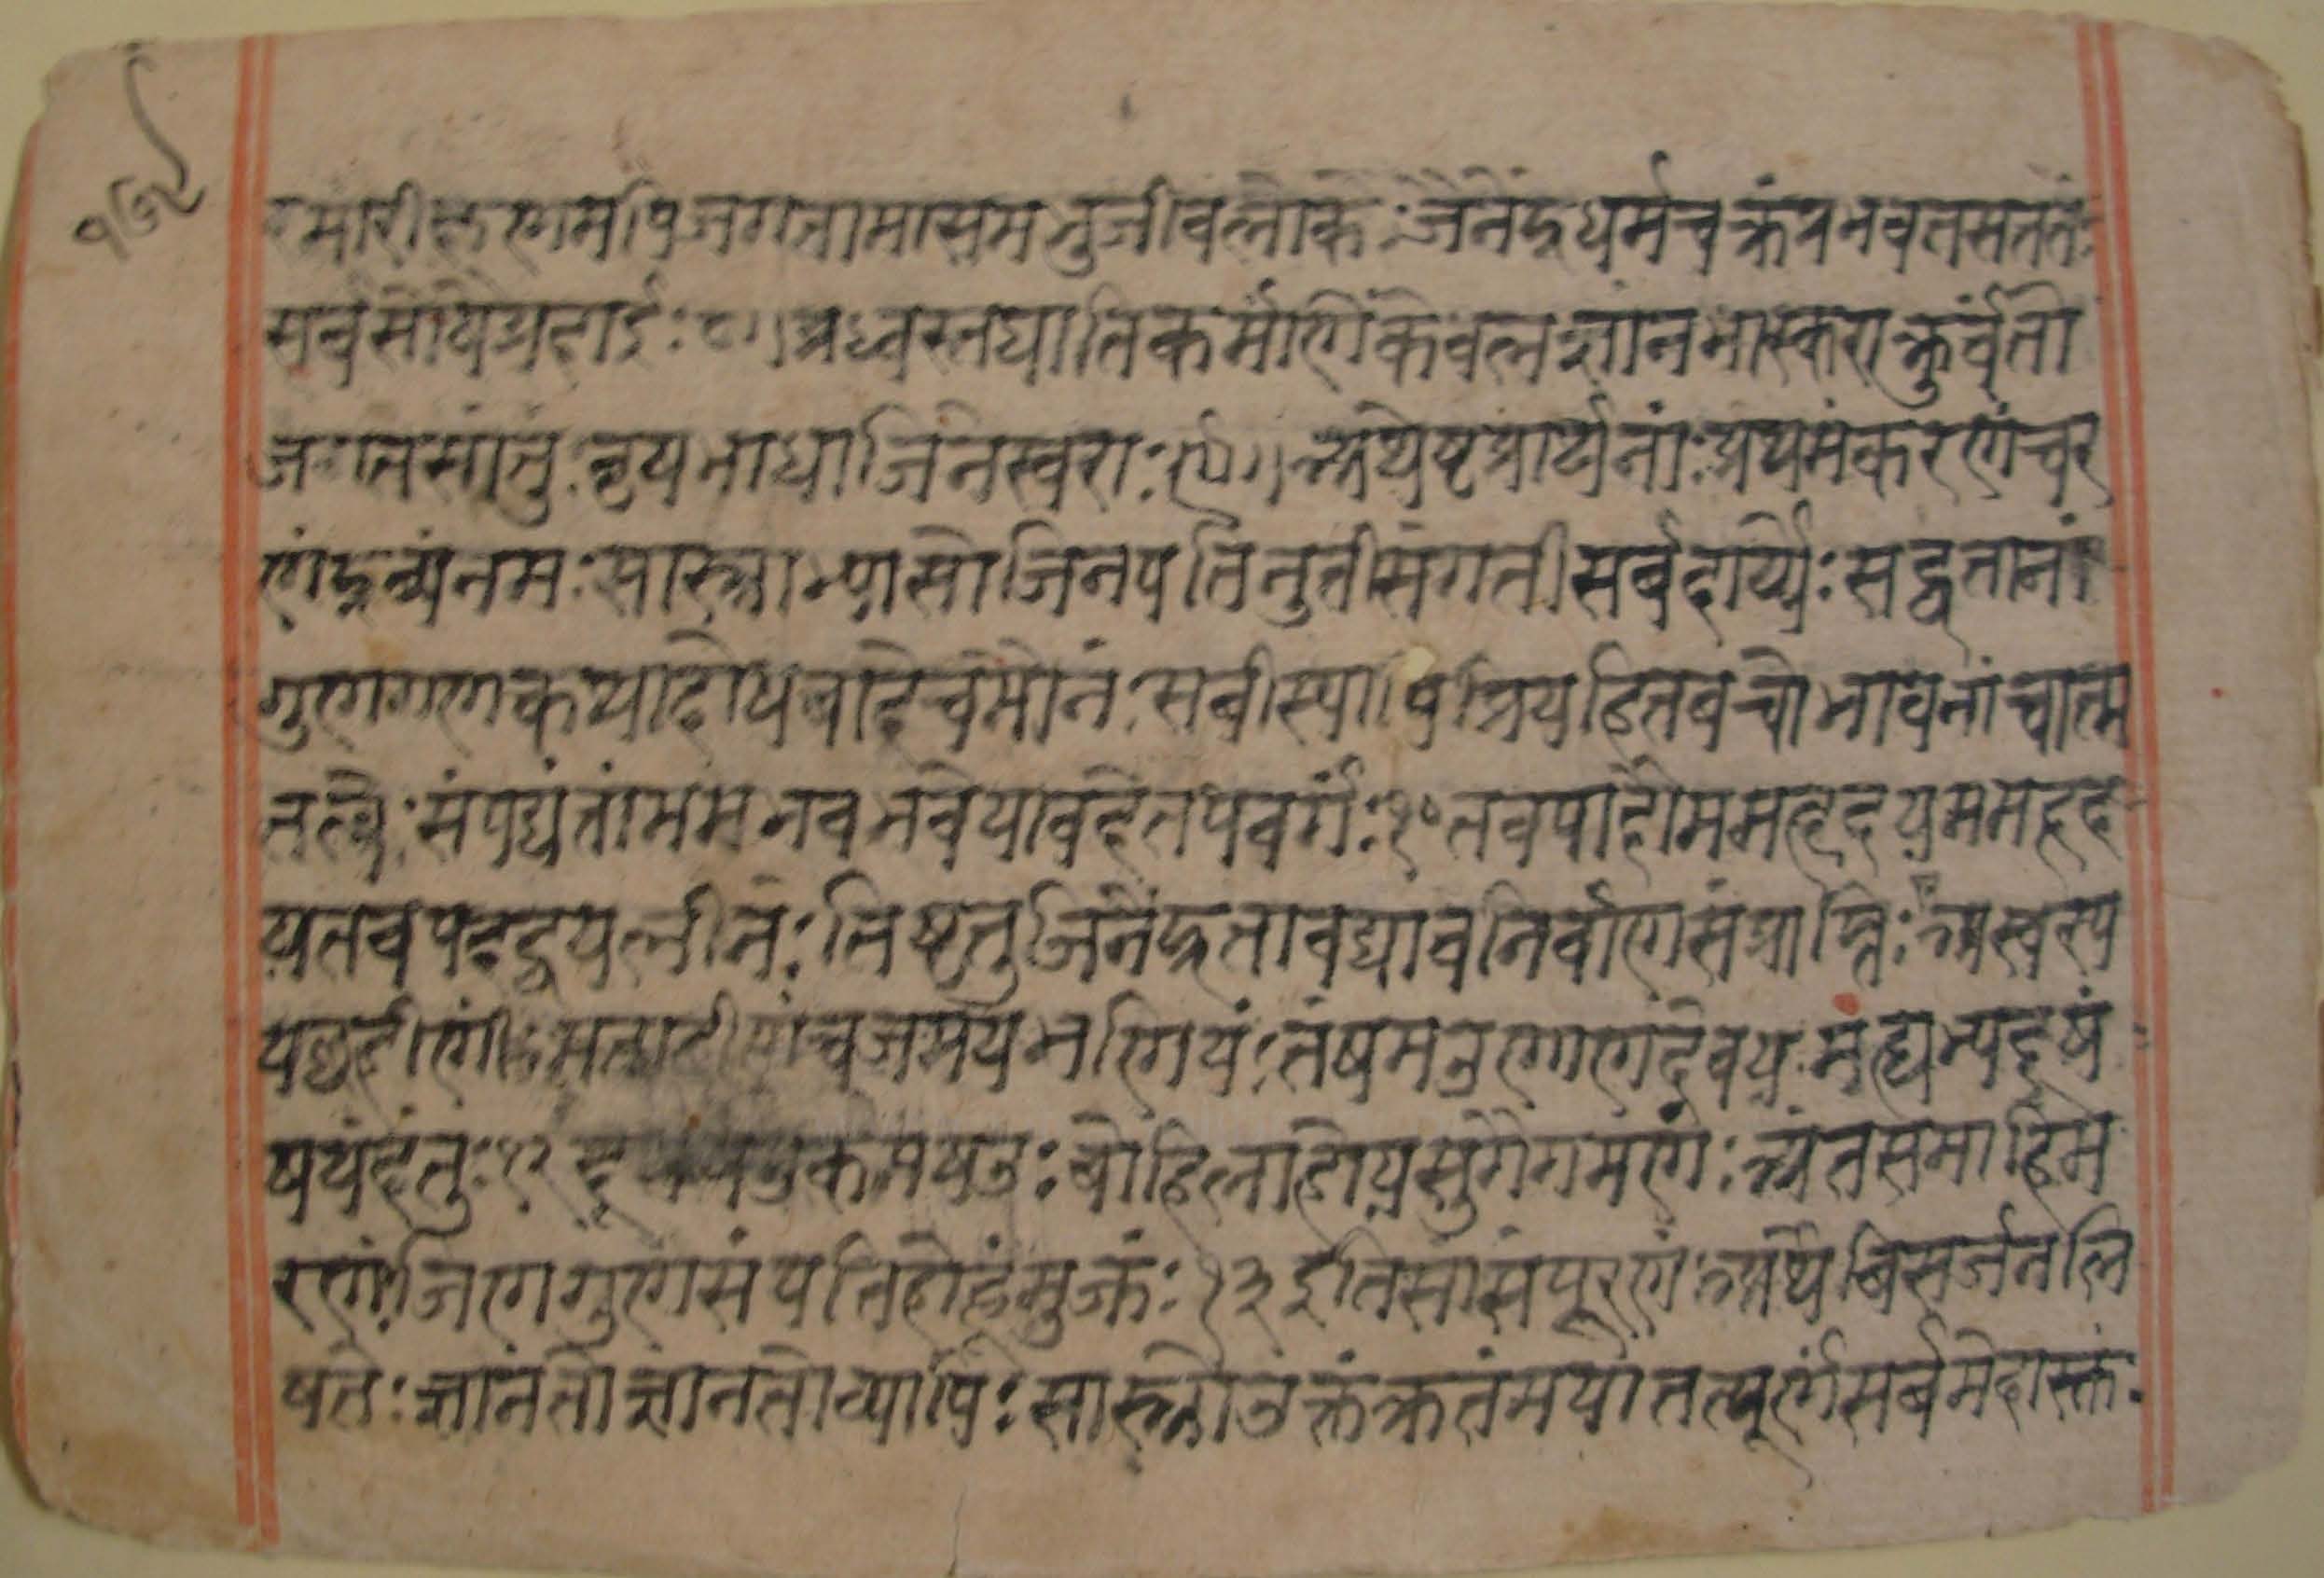 १७९
मारीक्षणमपिजगतामास्मभुजीवलोकेःजैनेंद्रधर्मचक्रंप्रभवतसततंः
सर्वसोषेप्रदाईः८॥प्रध्वस्तघातिकर्मांणिंकेवलज्ञांनभास्कराःकुर्वंतो
जगतसांतु.वृषभाद्याजिनेस्वराः९॥अथेष्टप्रार्थनांःप्रथमंकरणंचर
णंद्रव्यंनमःसास्त्राभ्यासोजिनपतिनुतीसंगतीसर्वदार्य्यैःसद्वृतानां
गुणगणकथादोषवादेचमौनंःसर्वास्यापिप्रियहितवचोभावनांचात्म
तत्त्वेःसंपद्यंतांममभवभवेयावदेतपवर्गंः१०तवपादौममहृदयममहृद
यतवपदद्वयलीनेःतिष्टतुजिनेंद्रतावद्यावनिर्वाणसंप्राप्तिःअस्वरप
यछहीणंःमताहीणंचजमयभणियंःतंषमउणाणदेवय.मंह्यभ्यदुषं
षयंदंतुः१२दु कमषउःबोहिलाहोयसुगैगमंणंःअंतसमाहिम
रणंःजिणगुणसंपतिहोहंमुक्तंः१३इतिसांसंपूरणंअथबिसर्जनलि
षतेःज्ञानंतोज्ञानतोव्यापिःसास्त्रोउक्तंक्रतंमयाततपूर्णंसर्बमेदास्तं: